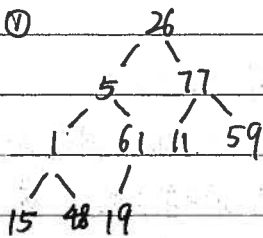 Ⓥ 26
5 77
1 61 11 59
15 48 19